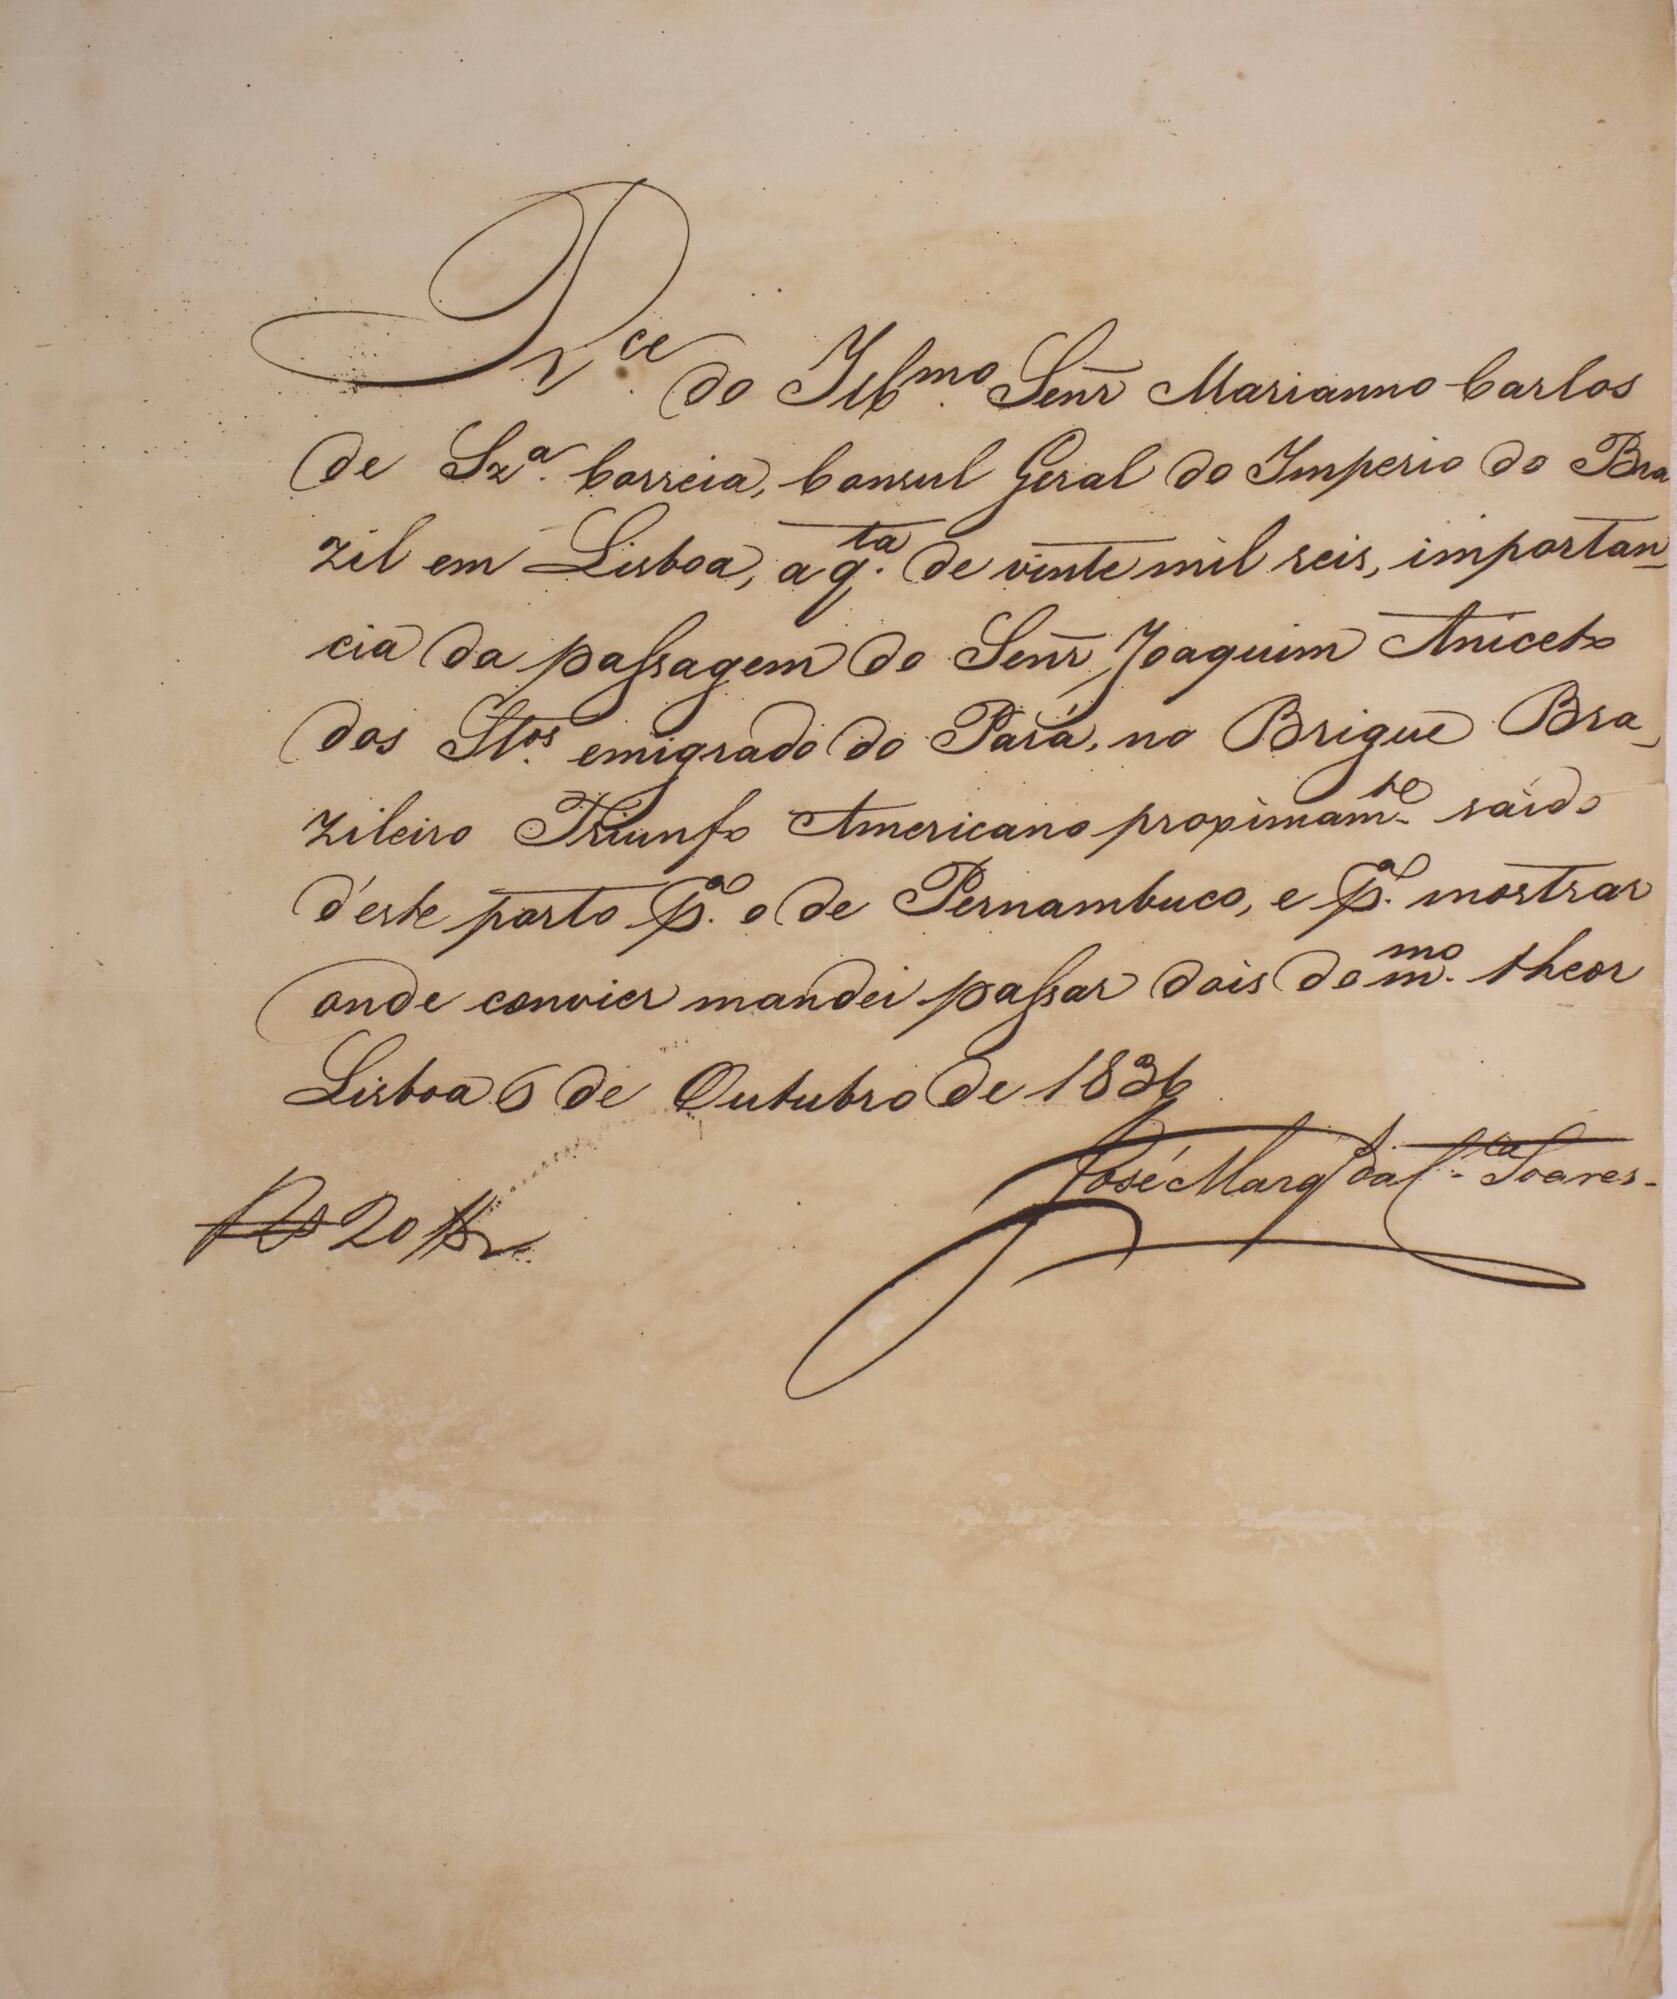 R.ce do Illmo. Senr. Marianno Carlos
de Sza. Correia, Consul Geral do Imperio do Bra
zil em Lisboa, a q.ta de vinte mil reis, importan_
cia da passagem do Senr. Joaquim Aniceto
dos Stos. emigrado do Pará, no Brigue Bra_
zileiro Triunfo Americano proximam.te saido
d'este porto p.a o de Pernambuco, e p.a mostrar
onde convier mandei passar dois do m.mo theor
Lisboa 6 de Outubro de 1836
José Marq. da C.ta Soares.
Rs 20$